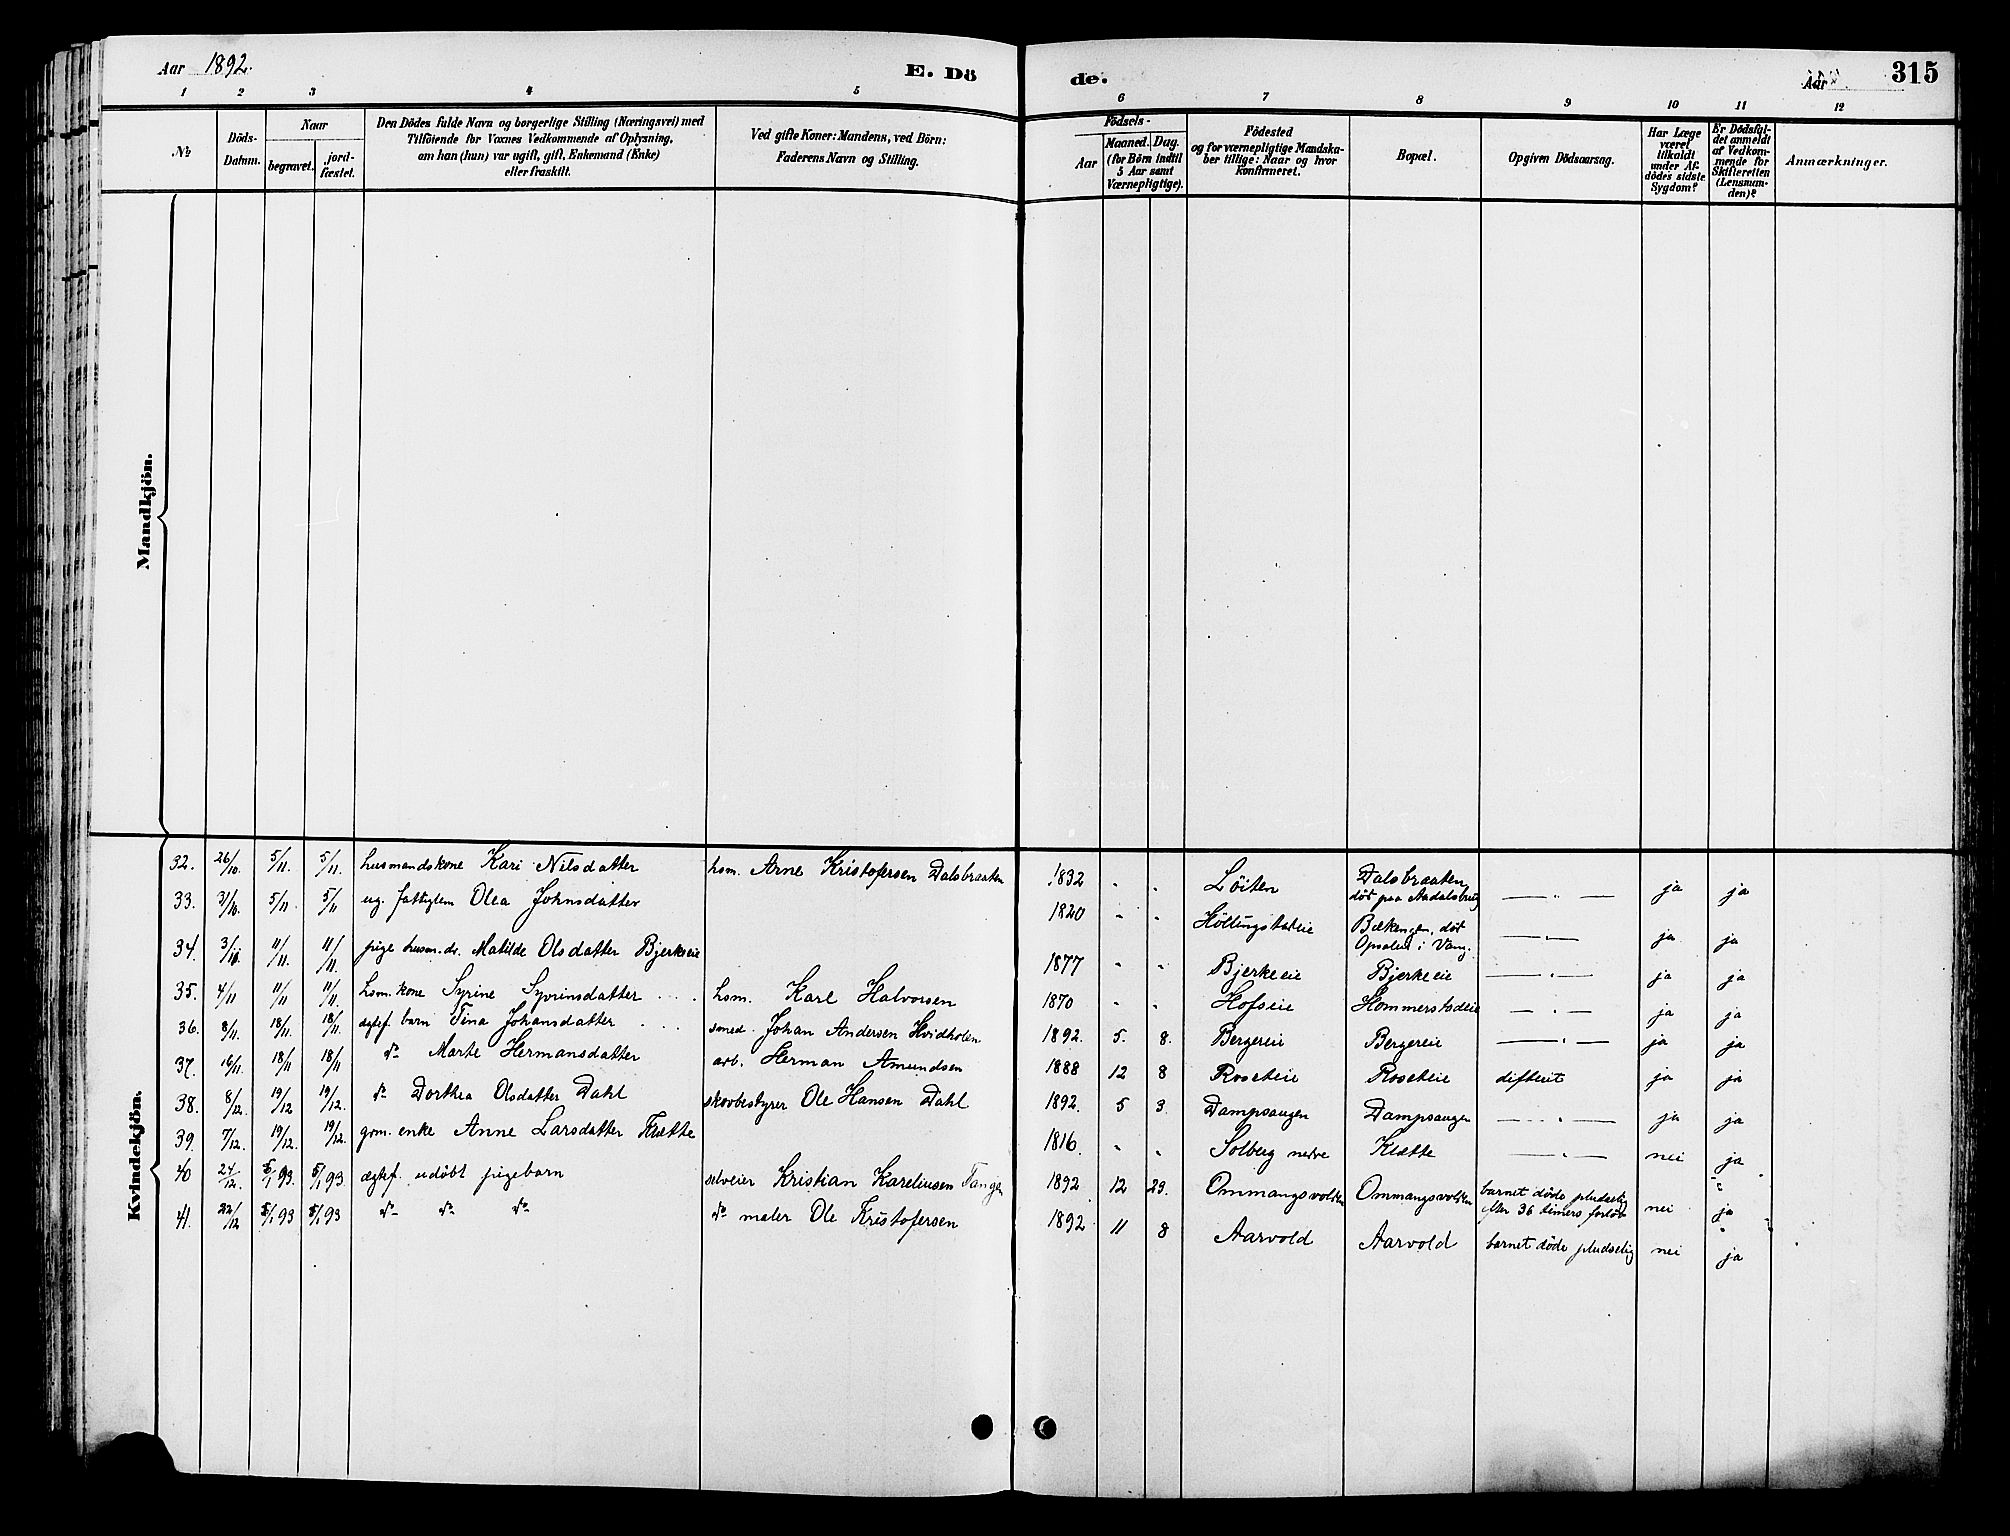 Aar 1892.
E. Dö
de.
Aar
315
1 2 3 4 5 6 7 8 9 10 11 12
No
Döds-Datum.
Naar
begravet.
jord-fæstet.
Den Dödes fulde Navn og borgerlige Stilling (Næringsvei) med
Tilföiende for Voxnes Vedkommende af Oplysning,
om han (hun) var ugift, gift, Enkemand (Enke)
eller fraskilt.
Ved gifte Koner: Mandens, ved Börn:
Faderens Navn og Stilling.
Födsels-
Aar
Maaned. Dag.
(for Börn indtil
5 Aar samt
Værnepligtige).
Födested
og for værnepligtige Mandska-
ber tillige: Naar og hvor
konfirmeret.
Bopæl.
Opgiven Dödsaarsag.
Har Læge
været
tilkaldt
under Af-
dödes sidste
Sygdom?
Er Dödsfal-
det anmeldt
af Vedkom-
mende for
Skifteretten
(Lensman-
den)?
Anmærkninger.
Mandkjön.
Kvindekjön.
32. 26/10. 5/11. 5/11. husmandskone Kari Nilsdatter hsm. Arne Kristofersen Dalsbraaten 1832 " " Löiten Dalsbraaten död paa Aadalsbrug — " — ja ja
33. 31/10. 5/11. 5/11 ug. fattiglem Olea Johnsdatter 1820 " " Höllingstadeie Bækengen, död Opsalen i Vang. — " — ja ja
34. 3/11. 11/11. 11/11. pige husm. dr. Matilde Olsdatter Bjerkeeie 1877 " " Bjerkeeie Bjerkeeie — " — ja ja
35. 4/11 11/11 11/11. hsm. kone Syrine Syvrinsdatter hsm. Karl Halvorsen 1870 " " Hofseie Hommerstadeie — " — ja ja
36. 8/11. 18/11. 18/11. ægtef. barn Tina Johansdatter smed. Johan Andersen Hvidholen 1892. 5. 8. Bergereie Bergereie — " — ja ja
37. 16/11. 18/11 18/11 do Marte Hermansdatter arb. Herman Amundsen 1888 12 8 Roseteie Roseteie difterit ja ja
38. 8/12. 19/12 19/12. do Dorthea Olsdatter Dahl skovbestyrer Ole Hansen Dahl 1892. 5 3. Dampsaugen Dampsaugen — " — ja ja
39. 7/12. 19/12. 19/12. gom. enke Anne Larsdatter Klætte 1816. " " Solberg nedre Klætte — " — nei ja
40 24/12. 5/1 93. 5/1 93. ægtef. udöbt pigebarn selveier Kristian Kareliusen Tangen 1892 12 23. Ommangsvolden Ommangsvolden barnet döde pludselig efter 36 timers forlöb nei ja
41. 22/12 5/1 93 5/1 93 do do do do maler Ole Kristofersen 1892 11 8 Aarvold Aarvold barnet döde pludselig nei ja